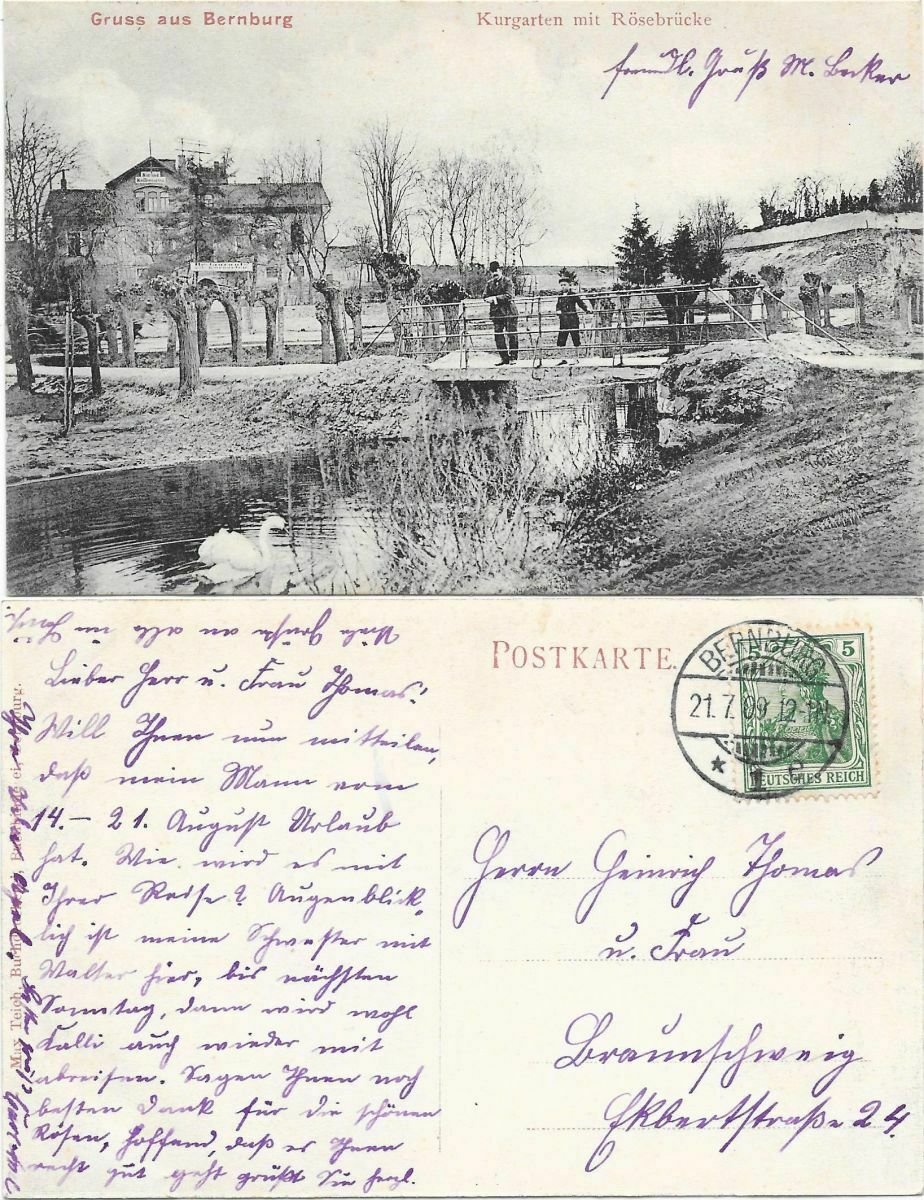 Gruss aus Bernburg
Kurgarten mit Rösebrücke
freundl. Gruß M. Becker
Viele Grüße an alle im Haus.
Lieber Herr u. Frau Thomas!
Will Ihnen nun mitteilen,
daß mein Mann vom
14. – 21. August Urlaub
hat. Wie wird es mit
Ihrer Reise? Augenblick-
lich ist meine Schwester mit
Walter hier, bis nächsten
Sonntag, dann wird wohl
Kalli auch wieder mit
abreisen. Sagen Ihnen noch
besten Dank für die schönen
Rosen, hoffend, daß es Ihnen
recht gut geht grüßt Sie herzl.
Ihre
Max Teich, Bernburg.
POSTKARTE.
BERNBURG
21.7.09.12-1N.
* 1 e
5 5
DEUTSCHES REICH
Herrn Heinrich Thomas
u. Frau
Braunschweig
Ekbertstraße 24.